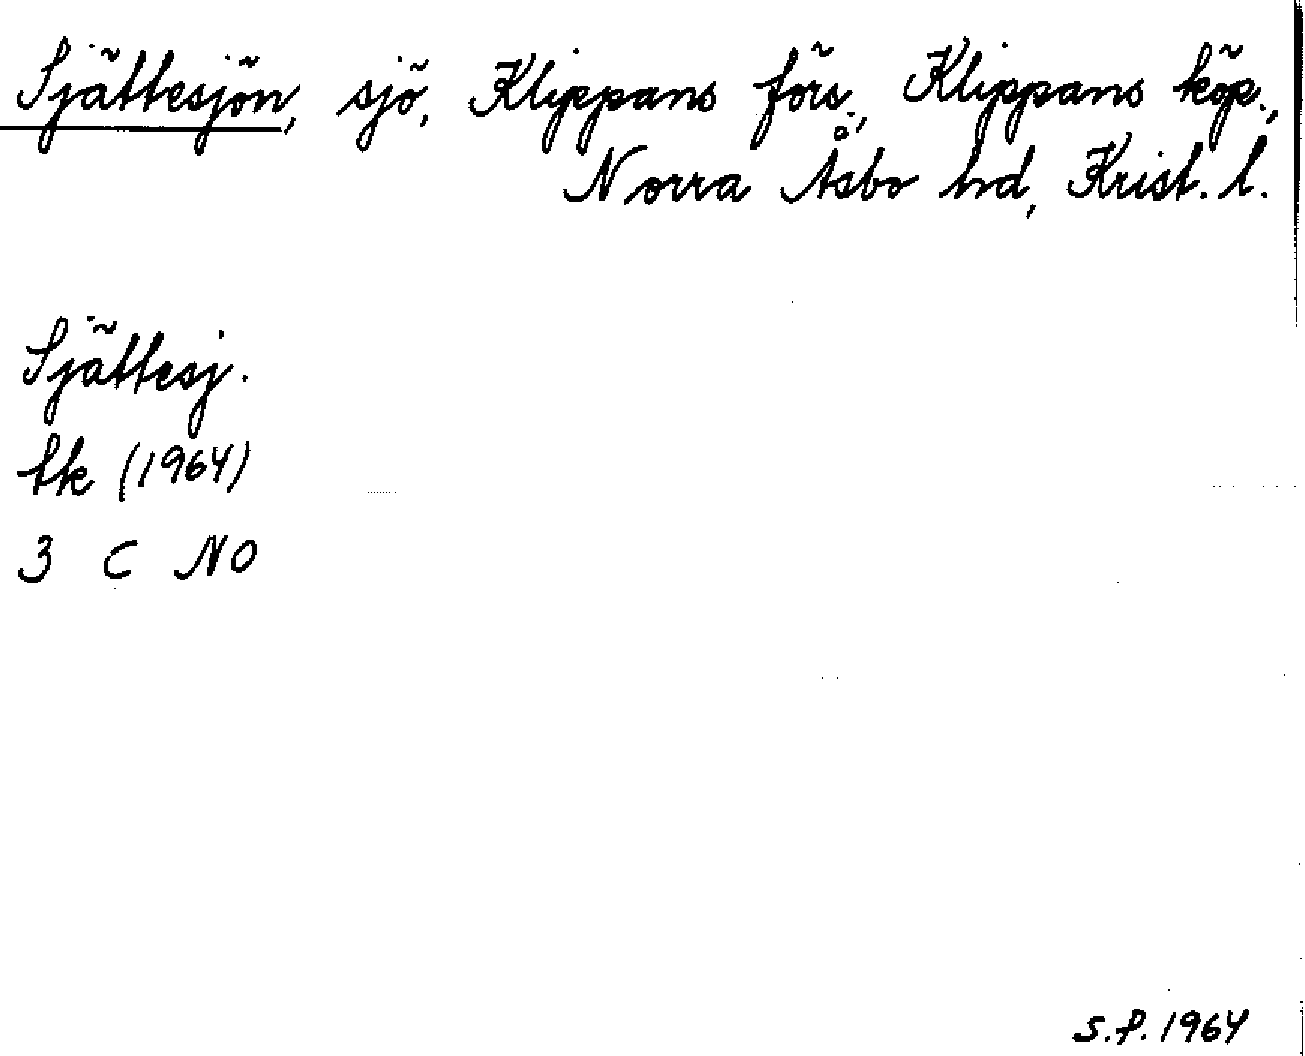 Sjättesjön, sjö, Klippans förs., Klippans köp.,
Norra Åsbo hd, Krist. l.
Sjättesj.
tk (1964)
3 C NO
S.P. 1964